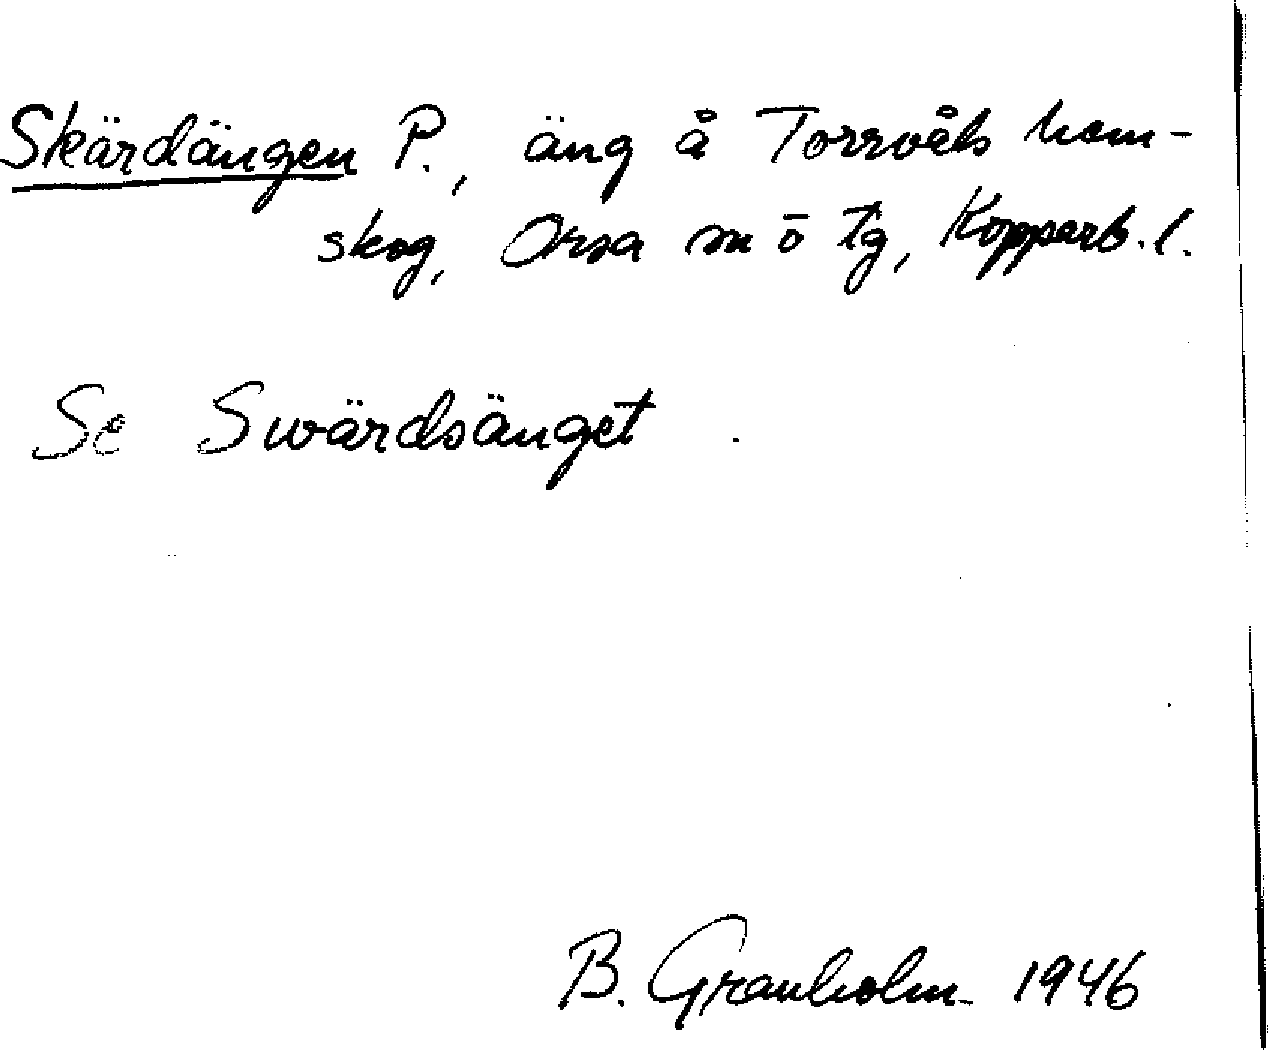 Skärdängen P., äng å Torrvåls hem-
skog, Orsa sn ö tg, Kopparb. l.
Se Swärdsänget
B. Granholm 1946